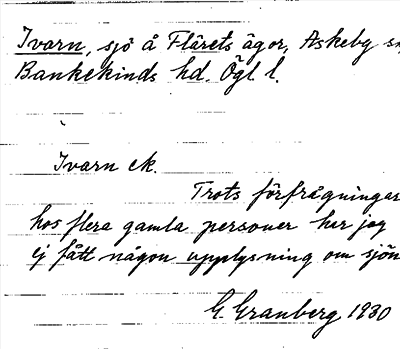 Ivarn, sjö å Flärets ägor, Askeby sn,
Bankekinds hd. Ögl. l.
Ivarn ek.
Trots förfrågningar
hos flera gamla personer har jag
ej fått någon upplysning om sjön
G. Granberg 1930